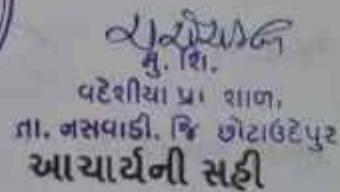 મુ. શિ.
વદેશીયા પ્રા શાળા,
તા. નસવાડી. જિ છોટાઉદેપુર
આચાર્યની સહી